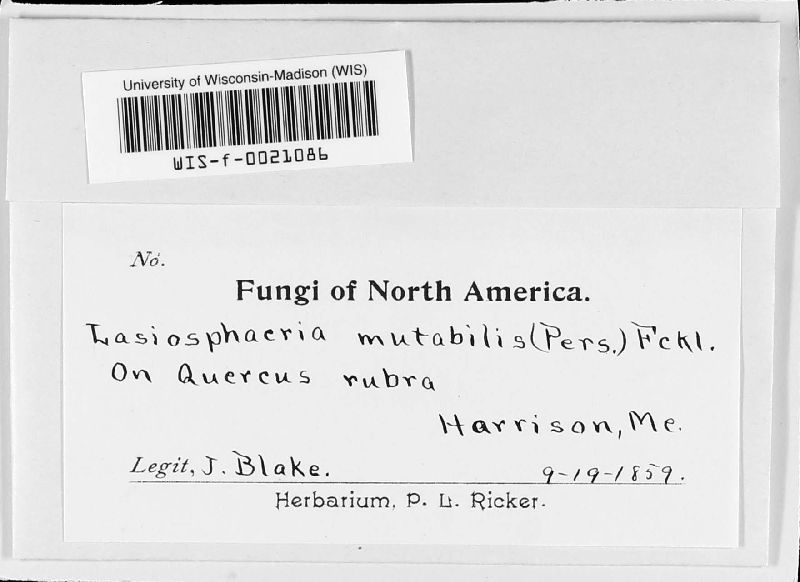 University of Wisconsin-Madison (WIS)
WIS-f-0021086
No.
Fungi of North America.
Lasiosphaeria mutabilis (Pers.) Fckl.
On Quercus rubra
Harrison, Me.
Legit, J. Blake. 9-19-1859.
Herbarium, P. L. Ricker.